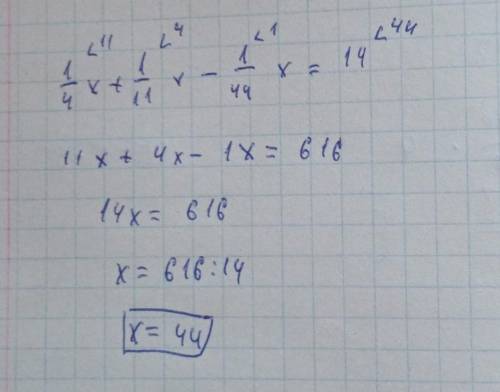 1/4^(∠11) x + 1/11^(∠4) x - 1/44^(∠1) x = 14^(∠44)
11x + 4x - 1x = 616
14x = 616
x = 616:14
x = 44